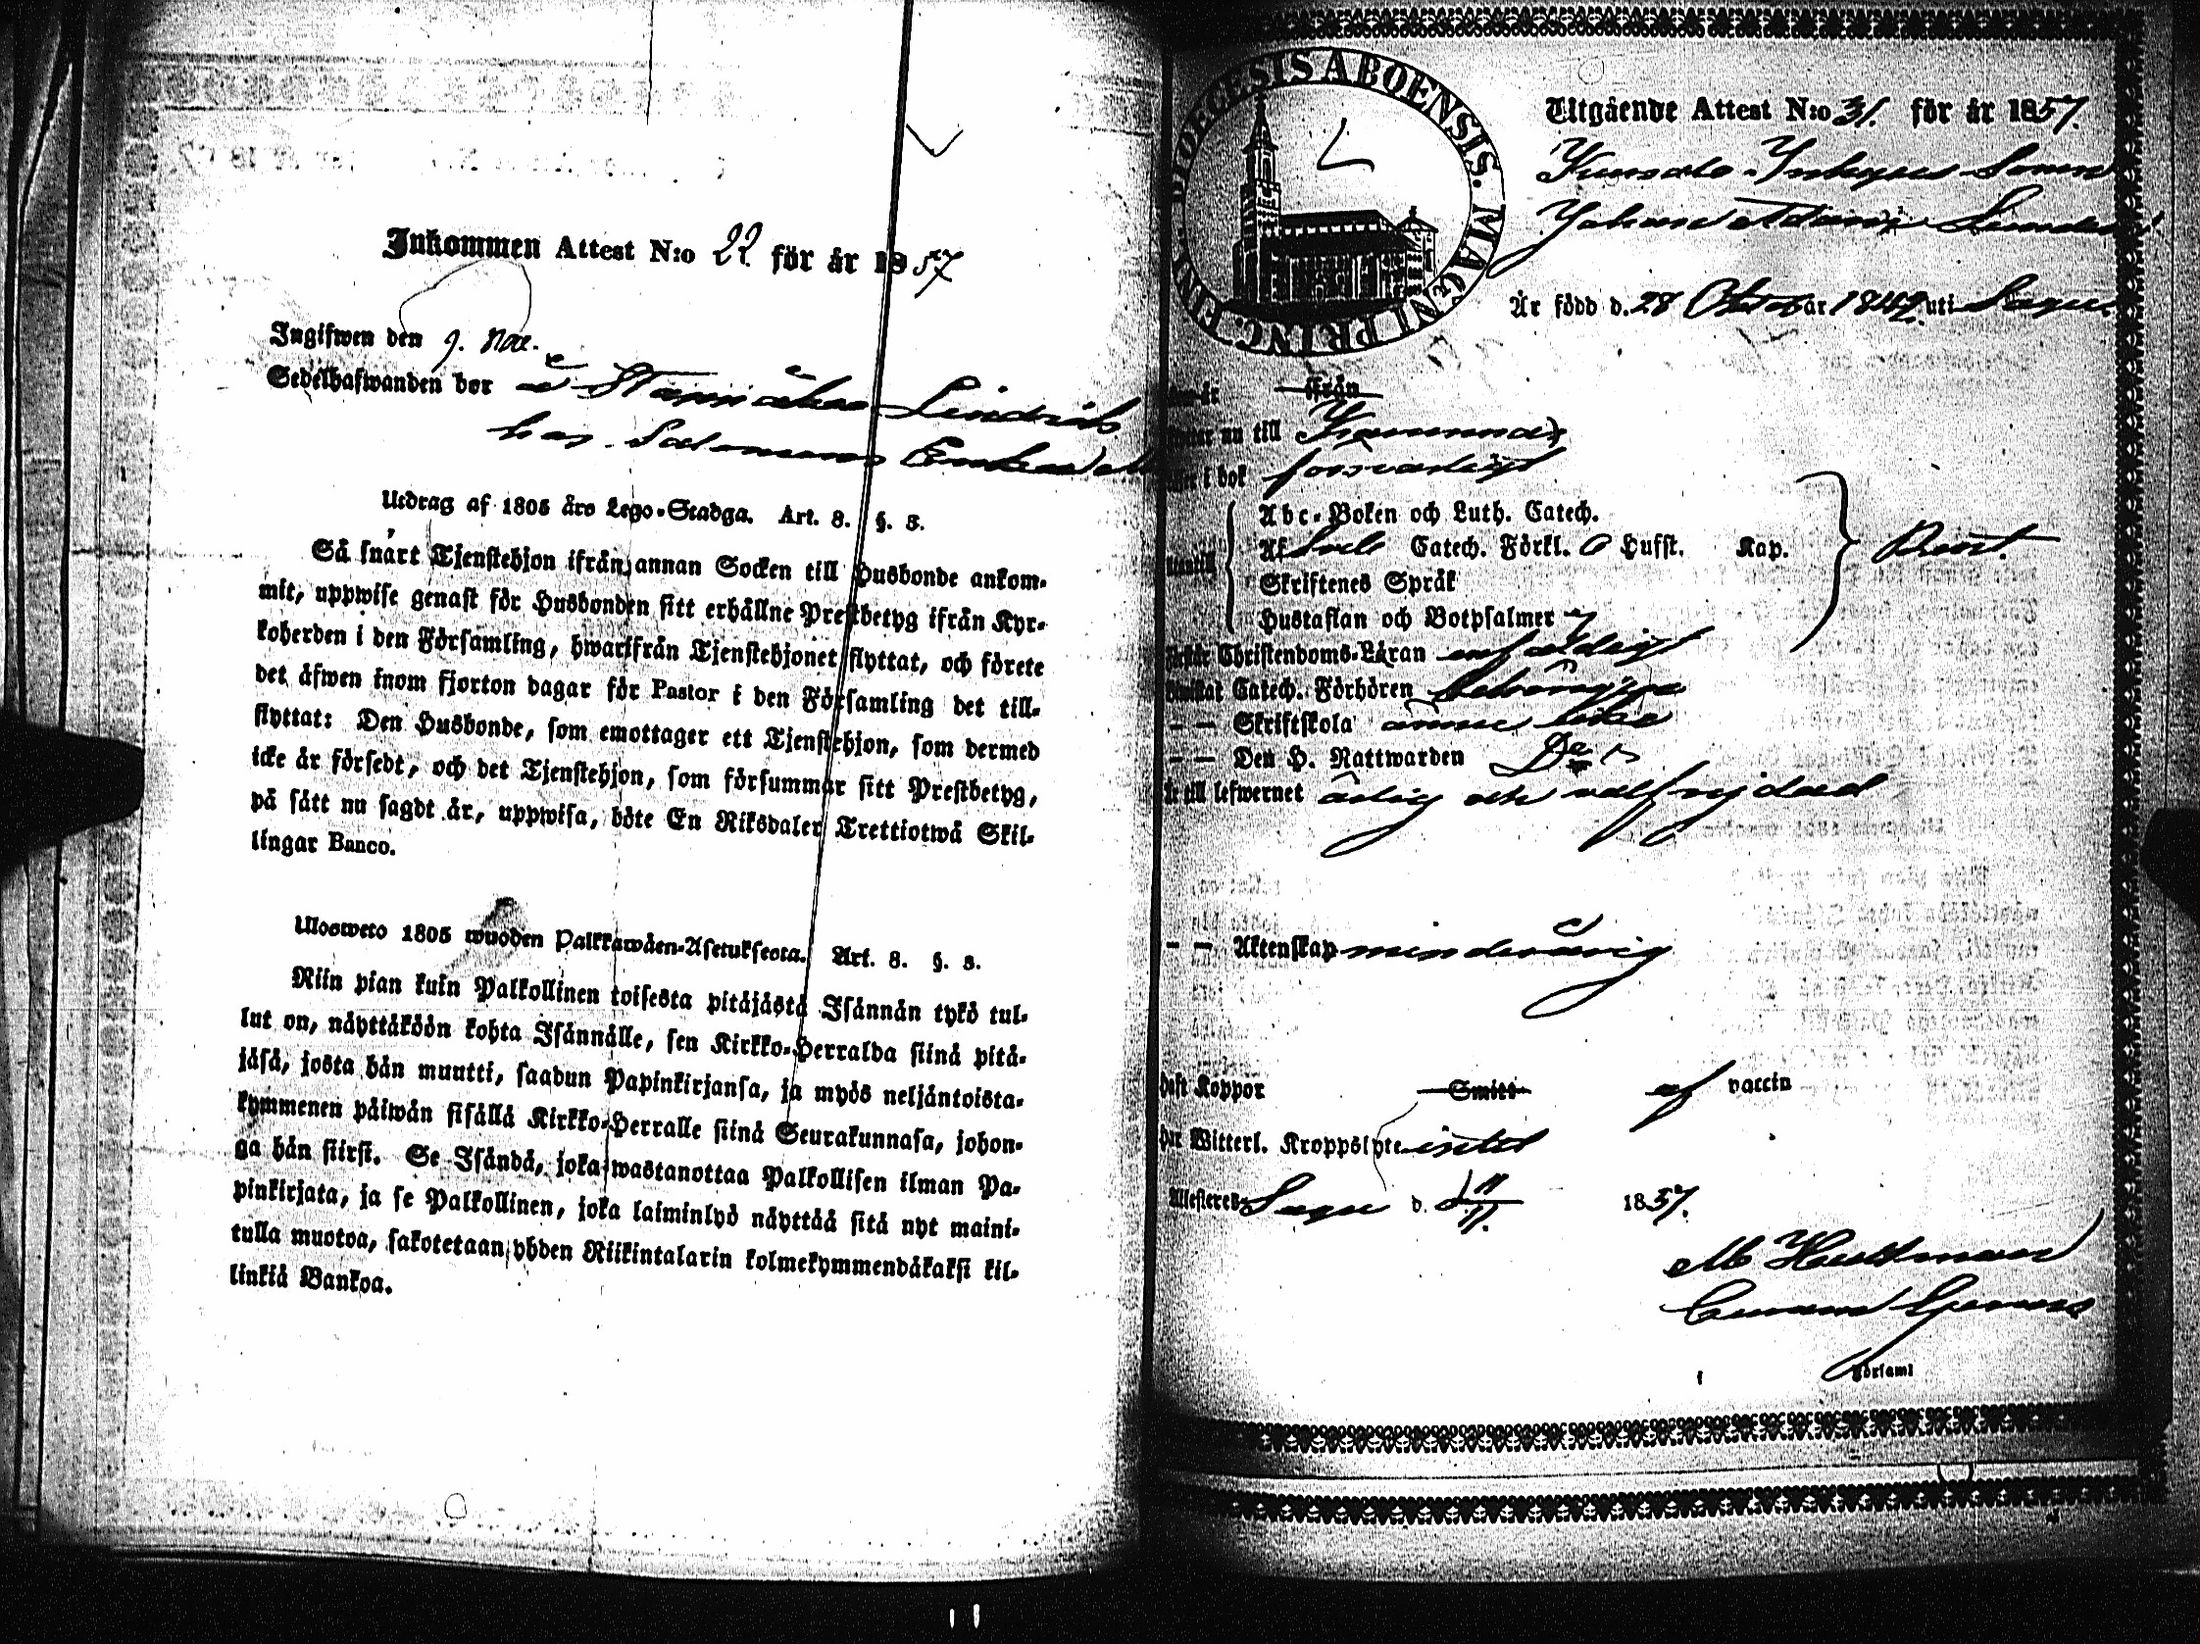 Inkommen Attest N:o 22 för år 1857
Ingifwen den 9. Nov.
Sedelhafwanden bor å
hos
Utdrag af 1805 års Lego-Stadga. Art. 8. §. 3.
Så snårt Tjenstehjon ifrån annan Socken till Husbonde ankom-
mit, uppwise genast för Husbonden sitt erhållne Prestbetyg ifrån Kyr-
koherden i den Församling, hwarifrån Tjenstehjonet flyttat, och förete
det äfwen inom fjorton dagar för Pastor i den Församling det till-
flyttat: Den Husbonde, som emottager ett Tjenstehjon, som dermed
icke är försedt, och det Tjenstehjon, som försummar sitt Prestbetyg,
på sätt nu sagdt är, uppwisa, böte En Riksdaler Trettiotwå Skil-
lingar Banco.
Ulosweto 1805 wuoden Palkkawäen-Asetuksesta. Art. 8. §. 3.
Niin pian kuin Palkollinen toisesta pitäjästä Isännän tykö tul-
lut on, näyttäköön kohta Isännälle, sen Kirkko-Herralda siinä pitä-
jäsä, josta hän muutti, saadun Papinkirjansa, ja myös neljäntoista-
kymmenen päiwän sisällä Kirkko-Herralle siinä Seurakunnasa, johon-
ga hän siirsi. Se Isändä, joka wastanottaa Palkollisen ilman Pa-
pinkirjata, ja se Palkollinen, joka laiminlyö näyttää sitä nyt maini-
tulla muotoa, sakotetaan yhden Riikintalarin kolmekymmendäkaksi kil-
linkiä Bankoa.
DIOECESIS ABOENSIS. MAGNI PRINC. FINL.
Utgående Attest N:o 31. för år 1857.
Johan
Är född d. 28 October uti Sagu
från
nu till
i bok försvarligt
Abc-Boken och Luth. Catech.
Af Sveb Catech. Förkl. O Hufst. Kap.
Skriftenes Språk
Hustaflan och Botpsalmer
Christendoms-Läran enfaldigt
Catech. Förhören
— — Skriftskola ännu icke
— — Den H. Nattwarden Do
till lefwernet ärlig och välfrejdad
— — Äktenskap minderårig
haft Koppor Smitt af vaccin
har Witterl. Kroppslyte intet
Attesteres Sagu d. 11/11. 1857.
M Hultman
Församl